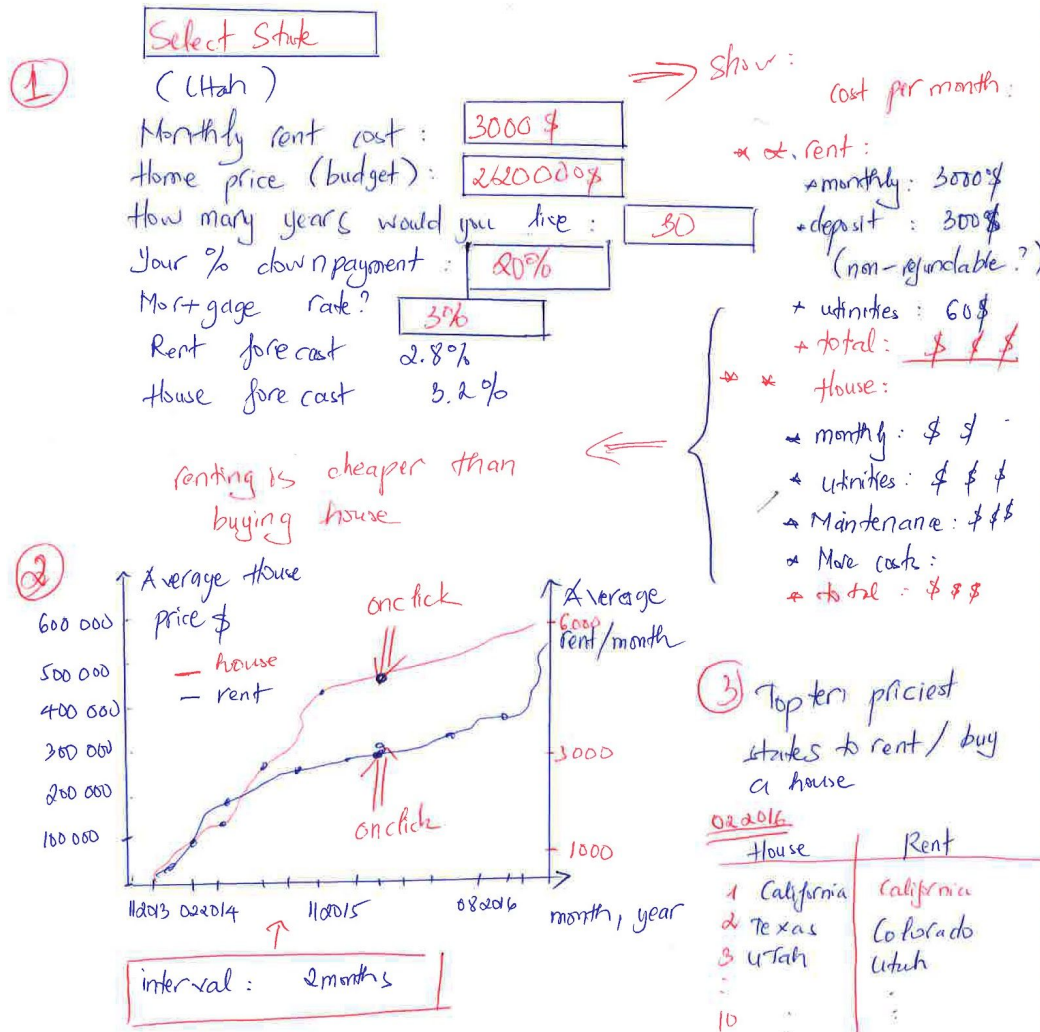 1
Select State
(Utah)
Monthly rent cost : 3000 $
Home price (budget) : 2620000$
How many years would you live : 30
Your % downpayment : 20%
Mortgage rate? 3%
Rent forecast 2.8%
House forecast 3.2%
renting is cheaper than
buying house
show :
cost per month :
* α. rent :
* monthly : 3000$
* deposit : 300$
(non-refundable?)
* utinities : 60$
* total : $ $ $
* * House :
* monthly : $ $
* utinities : $ $ $
* Maintenance : $$$
* More costs :
* total : $ $ $
2
Average House
price $
— house
— rent
600 000
500 000
400 000
300 000
200 000
100 000
onclick
onclick
Average
rent/month
6000
3000
1000
112013 022014 112015 082016 month, year
interval : 2 months
3 Top ten priciest
states to rent / buy
a house
022016
House Rent
1 California California
2 Texas Colorado
3 UTah Utah
:
:
10 :